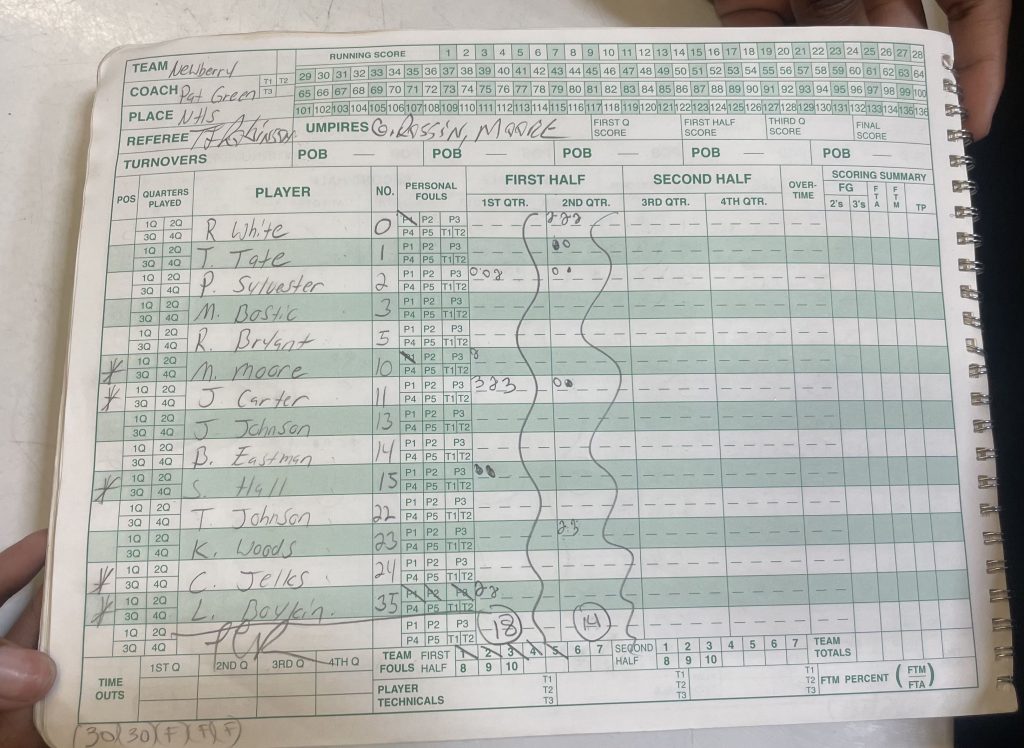 TEAM Newberry RUNNING SCORE 1 2 3 4 5 6 7 8 9 10 11 12 13 14 15 16 17 18 19 20 21 22 23 24 25 26 27 28
T1 T2 29 30 31 32 33 34 35 36 37 38 39 40 41 42 43 44 45 46 47 48 49 50 51 52 53 54 55 56 57 58 59 60 61 62 63 64
COACH Pat Green T3 65 66 67 68 69 70 71 72 73 74 75 76 77 78 79 80 81 82 83 84 85 86 87 88 89 90 91 92 93 94 95 96 97 98 99 100
PLACE NHS 101 102 103 104 105 106 107 108 109 110 111 112 113 114 115 116 117 118 119 120 121 122 123 124 125 126 127 128 129 130 131 132 133 134 135 136
REFEREE UMPIRES MOORE FIRST Q SCORE FIRST HALF SCORE THIRD Q SCORE FINAL SCORE
TURNOVERS POB — POB — POB — POB — POB —
POS QUARTERS PLAYED PLAYER NO. PERSONAL FOULS FIRST HALF SECOND HALF OVER-TIME SCORING SUMMARY
1ST QTR. 2ND QTR. 3RD QTR. 4TH QTR. FG 2's 3's FTA FTM TP
1Q 2Q R White 0 P2 P3 2 2 2
3Q 4Q P4 P5 T1 T2
1Q 2Q T. Tate 1 P1 P2 P3
3Q 4Q P4 P5 T1 T2
1Q 2Q P. Sylvester 2 P1 P2 P3
3Q 4Q P4 P5 T1 T2
1Q 2Q M. Bostic 3 P1 P2 P3
3Q 4Q P4 P5 T1 T2
1Q 2Q R. Bryant 5 P1 P2 P3
3Q 4Q P4 P5 T1 T2
1Q 2Q M. Moore 10 P1 P2 P3
3Q 4Q P4 P5 T1 T2
1Q 2Q J Carter 11 P1 P2 P3 3 2 3
3Q 4Q P4 P5 T1 T2
1Q 2Q J Johnson 13 P1 P2 P3
3Q 4Q P4 P5 T1 T2
1Q 2Q B. Eastman 14 P1 P2 P3
3Q 4Q P4 P5 T1 T2
1Q 2Q S. Hall 15 P1 P2 P3
3Q 4Q P4 P5 T1 T2
1Q 2Q T. Johnson 22 P1 P2 P3
3Q 4Q P4 P5 T1 T2
1Q 2Q K. Woods 23 P1 P2 P3 2 3
3Q 4Q P4 P5 T1 T2
1Q 2Q C. Jelks 24 P1 P2 P3
3Q 4Q P4 P5 T1 T2
1Q 2Q L. Boykin 35 P1 P2 P3
3Q 4Q P4 P5 T1 T2
1Q 2Q P1 P2 P3 18 14
3Q 4Q P4 P5 T1 T2
TIME OUTS 1ST Q 2ND Q 3RD Q 4TH Q
TEAM FOULS FIRST HALF 1 2 3 4 5 6 7 8 9 10 SECOND HALF 1 2 3 4 5 6 7 8 9 10 TEAM TOTALS
PLAYER TECHNICALS T1 T2 T3 T1 T2 T3 T1 T2 T3 FTM PERCENT (FTM/FTA)
30 30 F F F